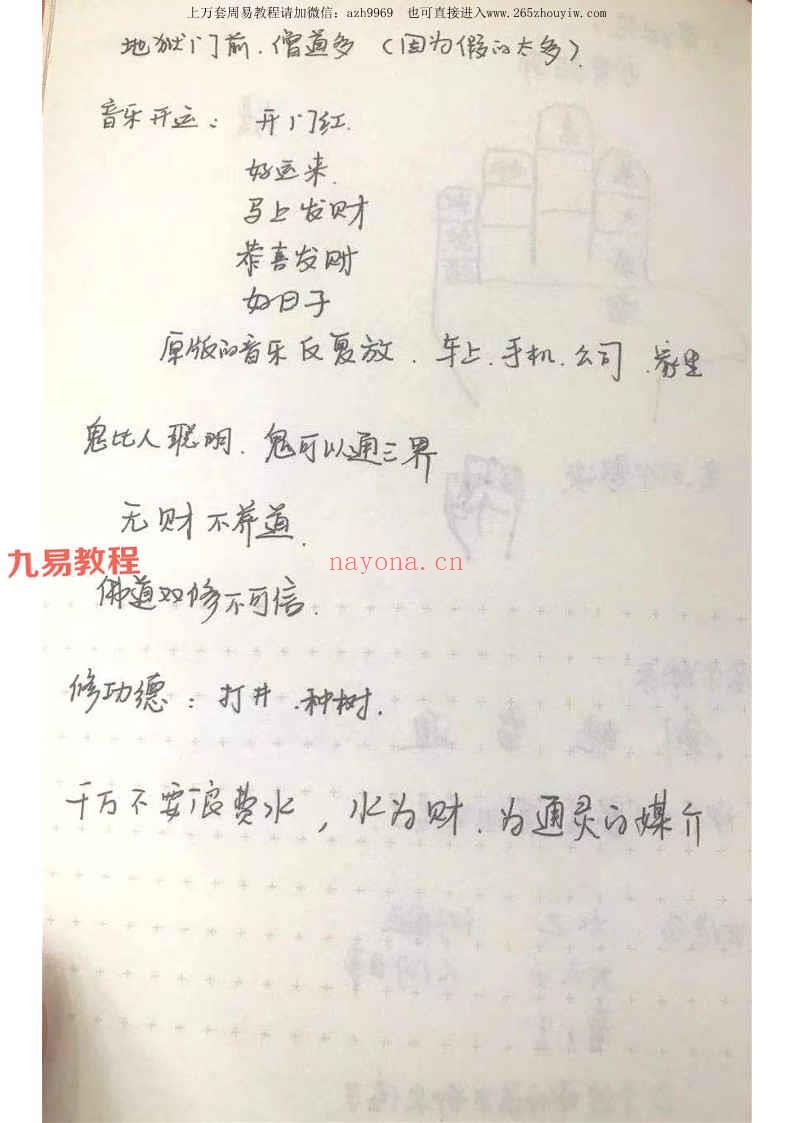 上万套周易教程请加微信：azh9969 也可直接进入www.265zhouyiw.com
地狱门前．僧道多（因为假的太多）.
音乐开运：开门红.
好运来.
马上发财
恭喜发财
好日子
原版的音乐反复放．车上．手机．公司．家里
鬼比人聪明．鬼可以通三界
无财不养道.
九易教程
nayona.cn
佛道双修不可信.
修功德：打井．种树.
千万不要浪费水，水为财．为通灵的媒介